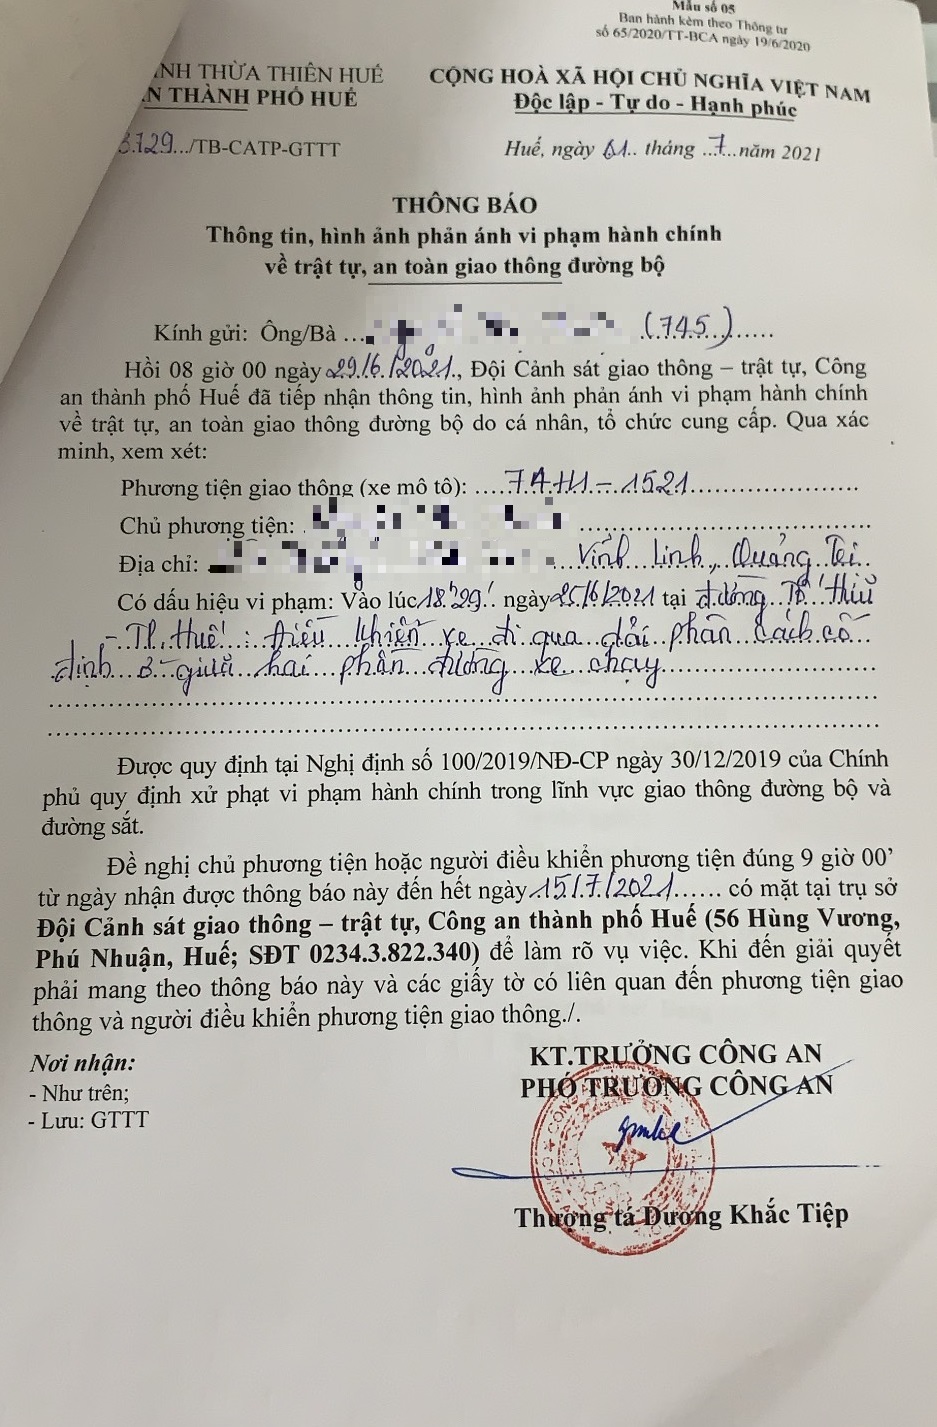 Mẫu số 05
Ban hành kèm theo Thông tư
số 65/2020/TT-BCA ngày 19/6/2020
NH THỪA THIÊN HUẾ
N THÀNH PHỐ HUẾ
CỘNG HOÀ XÃ HỘI CHỦ NGHĨA VIỆT NAM
Độc lập - Tự do - Hạnh phúc
3.129.../TB-CATP-GTTT
Huế, ngày 01.. tháng ..7...năm 2021
THÔNG BÁO
Thông tin, hình ảnh phản ánh vi phạm hành chính
về trật tự, an toàn giao thông đường bộ
Kính gửi: Ông/Bà ... (745)......
Hồi 08 giờ 00 ngày 29/6/2021., Đội Cảnh sát giao thông – trật tự, Công
an thành phố Huế đã tiếp nhận thông tin, hình ảnh phản ánh vi phạm hành chính
về trật tự, an toàn giao thông đường bộ do cá nhân, tổ chức cung cấp. Qua xác
minh, xem xét:
Phương tiện giao thông (xe mô tô): ....74H1-1521....
Chủ phương tiện:
Địa chỉ: ...Vĩnh Linh, Quảng Trị..
Có dấu hiệu vi phạm: Vào lúc 18.'29.' ngày 25/6/2021 tại đường Tố Hữu
- Tp. Huế: điều khiển xe đi qua dải phân cách cố
định ở giữa hai phần đường xe chạy.
Được quy định tại Nghị định số 100/2019/NĐ-CP ngày 30/12/2019 của Chính
phủ quy định xử phạt vi phạm hành chính trong lĩnh vực giao thông đường bộ và
đường sắt.
Đề nghị chủ phương tiện hoặc người điều khiển phương tiện đúng 9 giờ 00’
từ ngày nhận được thông báo này đến hết ngày 15/7/2021...... có mặt tại trụ sở
Đội Cảnh sát giao thông – trật tự, Công an thành phố Huế (56 Hùng Vương,
Phú Nhuận, Huế; SĐT 0234.3.822.340) để làm rõ vụ việc. Khi đến giải quyết
phải mang theo thông báo này và các giấy tờ có liên quan đến phương tiện giao
thông và người điều khiển phương tiện giao thông./.
Nơi nhận:
- Như trên;
- Lưu: GTTT
KT.TRƯỞNG CÔNG AN
PHÓ TRƯỞNG CÔNG AN
Thượng tá Dương Khắc Tiệp